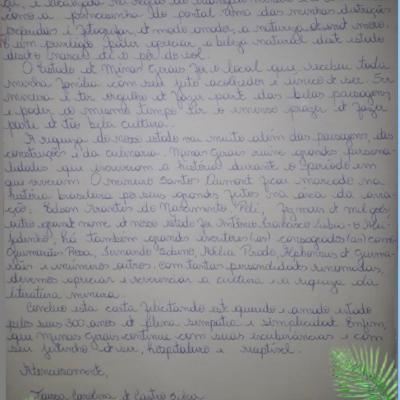 é localizada na região do triângulo mineiro e
com a pertencinha do portal uma das minhas distrações
preferidas é fotografar, de modo amador, a natureza deste nosso
é um privilégio poder apreciar a beleza natural deste estado
desde o nascer até o pôr do sol.
O Estado de Minas Gerais foi o local que recebeu toda
minha família com seu jeito acolhedor e único de ser. Ser
mineira é ter orgulho de fazer parte das belas paisagens
e poder ao mesmo tempo ter o imenso prazer de fazer
parte de tão bela cultura.
A riqueza do nosso estado vai muito além das paisagens, das
construções e da culinária. Minas Gerais reúne grandes persona-
lidades que escreveram a história durante o período em
que viveram. O mineiro Santos Dumont ficou marcado na
história brasileira por seus grandes feitos na área da avia-
ção; Edson Arantes do Nascimento Pelé, fez mais de mil gols;
outro grande nome de nosso estado foi Antônio Francisco Lisboa - o Alei-
jadinho; há também grandes escritores(as) consagrados(as) como
Guimarães Rosa, Fernando Sabino, Adélia Prado, Alphonsus de Guima-
rães e inúmeros outros. Com tantas personalidades renomadas,
devemos apreciar e reverenciar a cultura e a riqueza da
literatura mineira.
Concluo esta carta felicitando este querido e amado estado
pelos seus 300 anos de plena simpatia e simplicidade. Enfim,
que Minas Gerais continue com suas exuberâncias e com
seu jeitinho de ser, hospitaleiro e receptivel.
Atenciosamente,
Carolina de Castro Silva